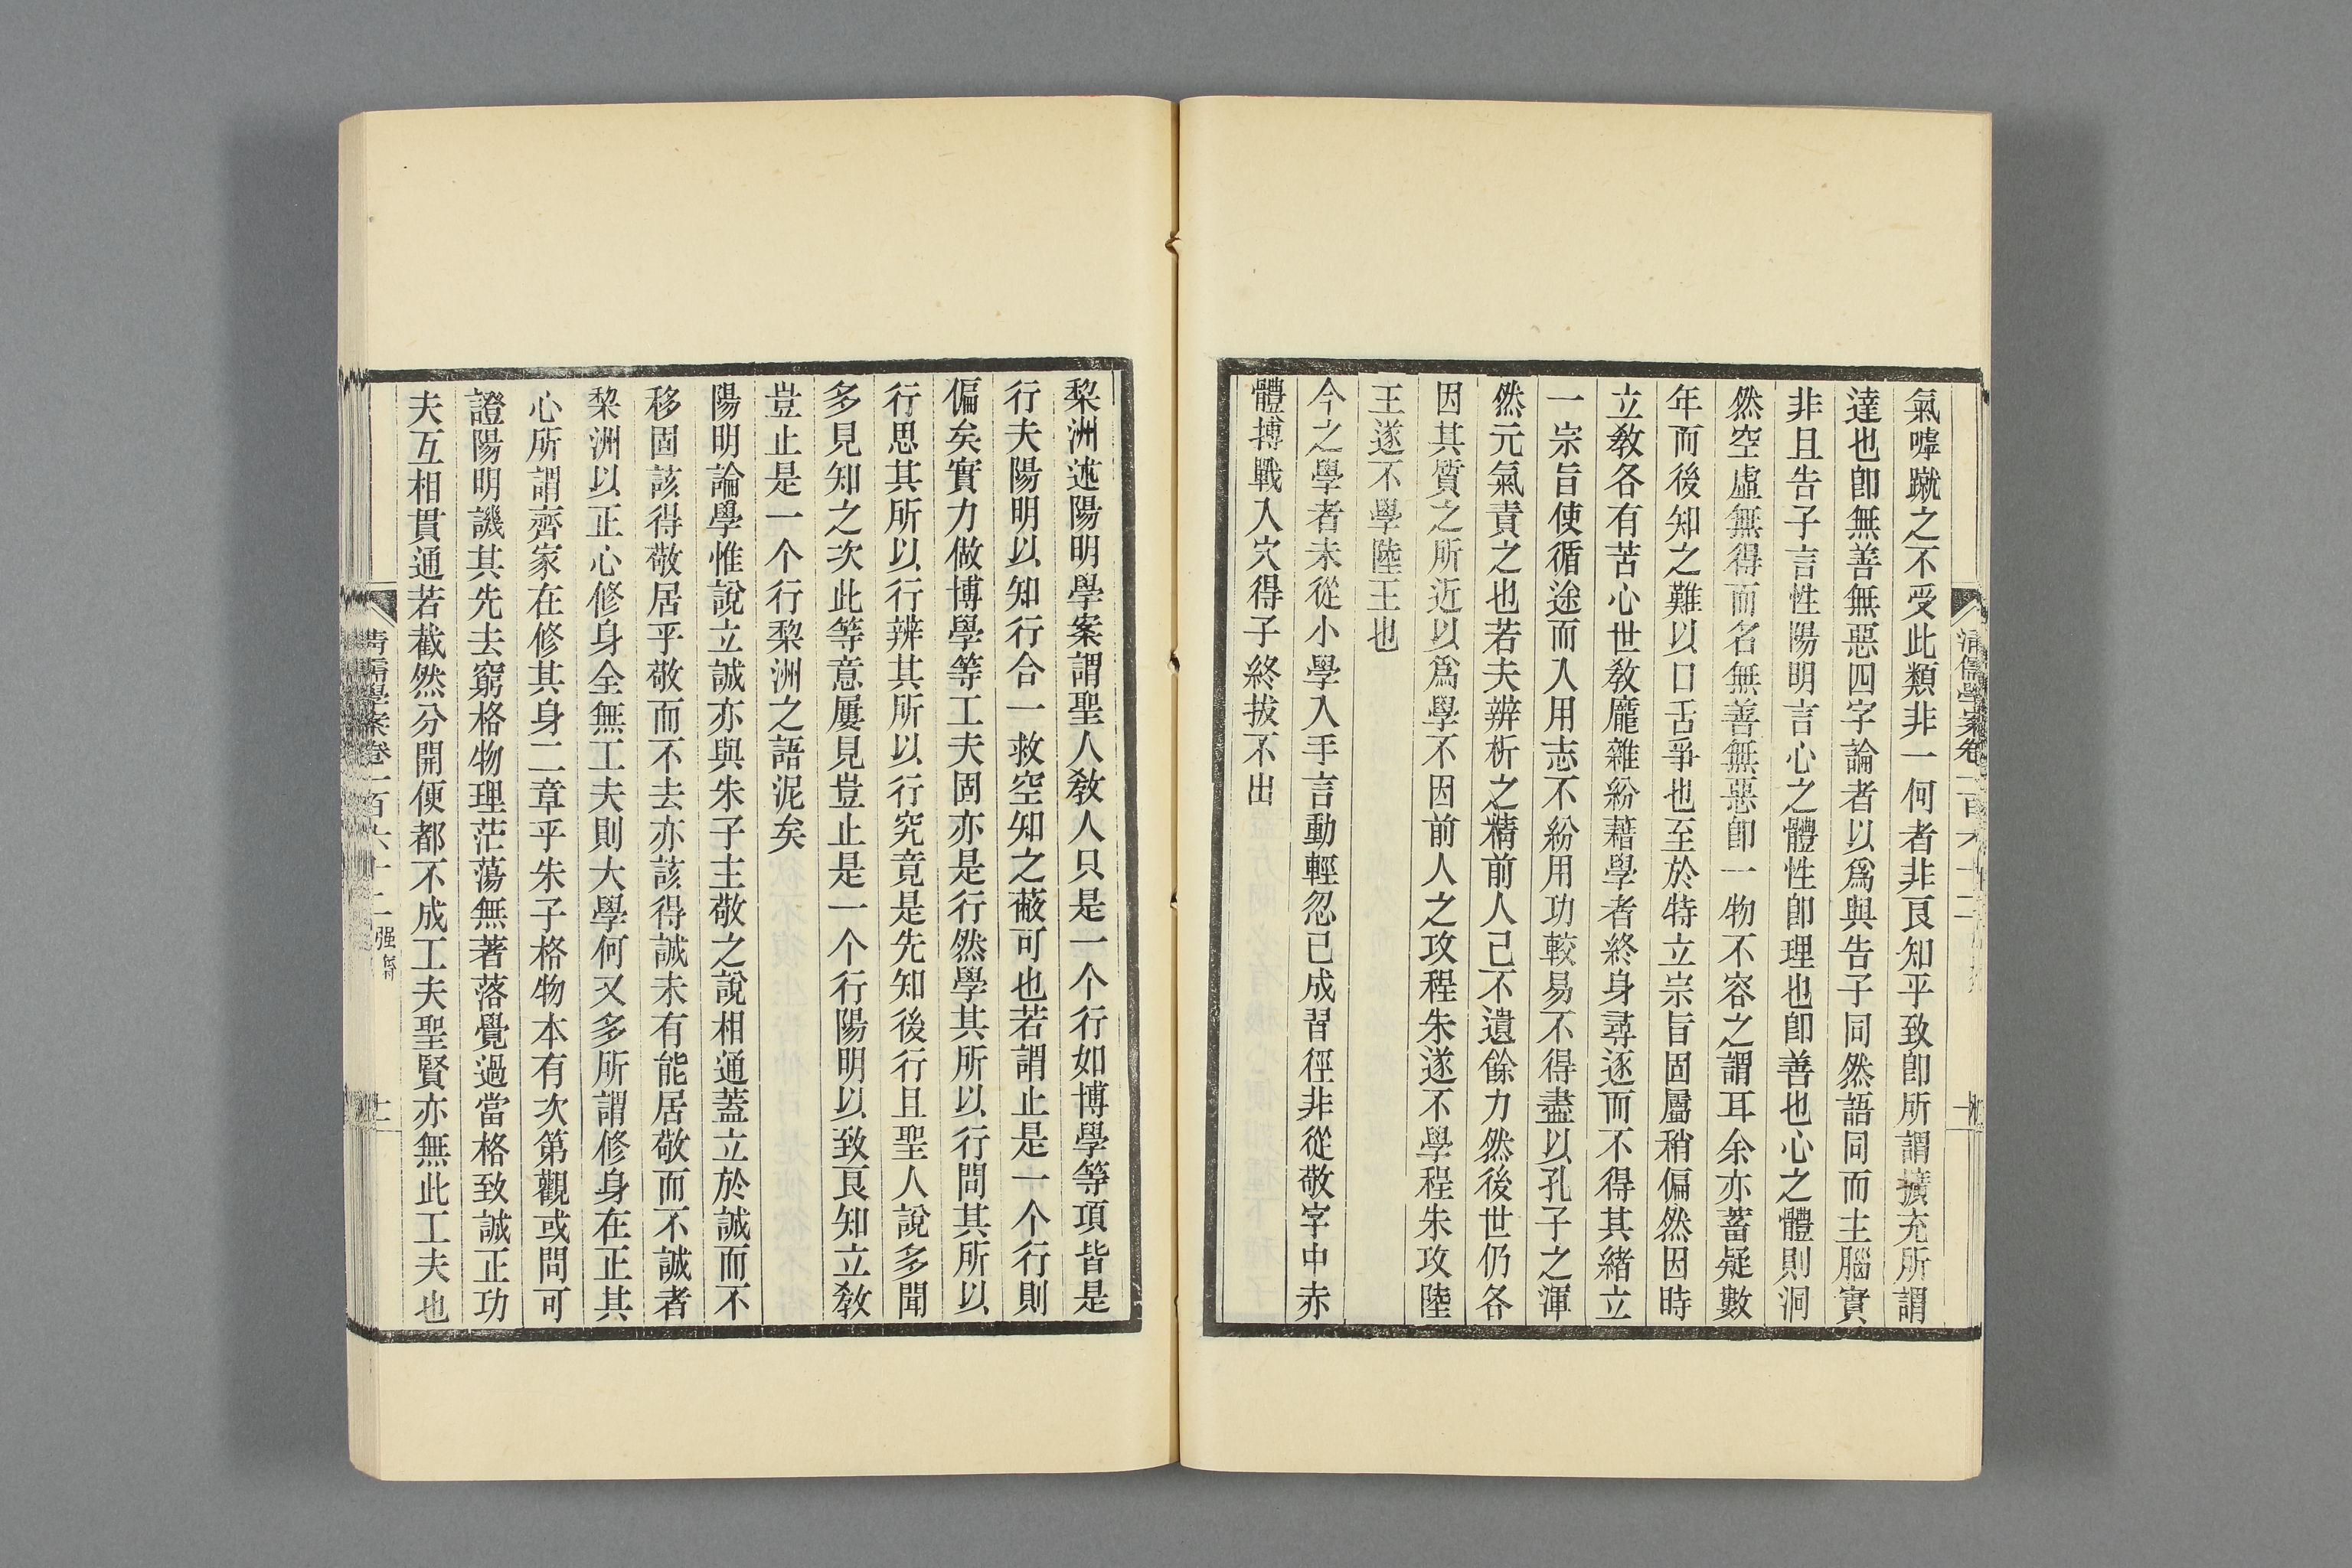 氣嘑蹴之不受此類非一何者非良知乎致卽所謂擴充所謂
達也卽無善無惡四字論者以爲與告子同然語同而主腦實
非且告子言性陽明言心之體性卽理也卽善也心之體則洞
然空虛無得而名無善無惡卽一物不容之謂耳余亦蓄疑數
年而後知之難以口舌爭也至於特立宗旨固屬稍偏然因時
立敎各有苦心世敎龐雜紛藉學者終身尋逐而不得其緒立
一宗旨使循途而入用志不紛用功較易不得盡以孔子之渾
然元氣責之也若夫辨析之精前人已不遺餘力然後世仍各
因其質之所近以爲學不因前人之攻程朱遂不學程朱攻陸
王遂不學陸王也
今之學者未從小學入手言動輕忽已成習徑非從敬字中赤
體搏戰入穴得子終拔不出
棃洲述陽明學案謂聖人敎人只是一个行如博學等項皆是
行夫陽明以知行合一救空知之蔽可也若謂止是一个行則
偏矣實力做博學等工夫固亦是行然學其所以行問其所以
行思其所以行辨其所以行究竟是先知後行且聖人說多聞
多見知之次此等意屢見豈止是一个行陽明以致良知立敎
豈止是一个行棃洲之語泥矣
陽明論學惟說立誠亦與朱子主敬之說相通蓋立於誠而不
移固該得敬居乎敬而不去亦該得誠未有能居敬而不誠者
棃洲以正心修身全無工夫則大學何又多所謂修身在正其
心所謂齊家在修其身二章乎朱子格物本有次第觀或問可
證陽明譏其先去窮格物理茫蕩無著落覺過當格致誠正功
夫互相貫通若截然分開便都不成工夫聖賢亦無此工夫也
清儒學案卷一百六十二 强齋
十二